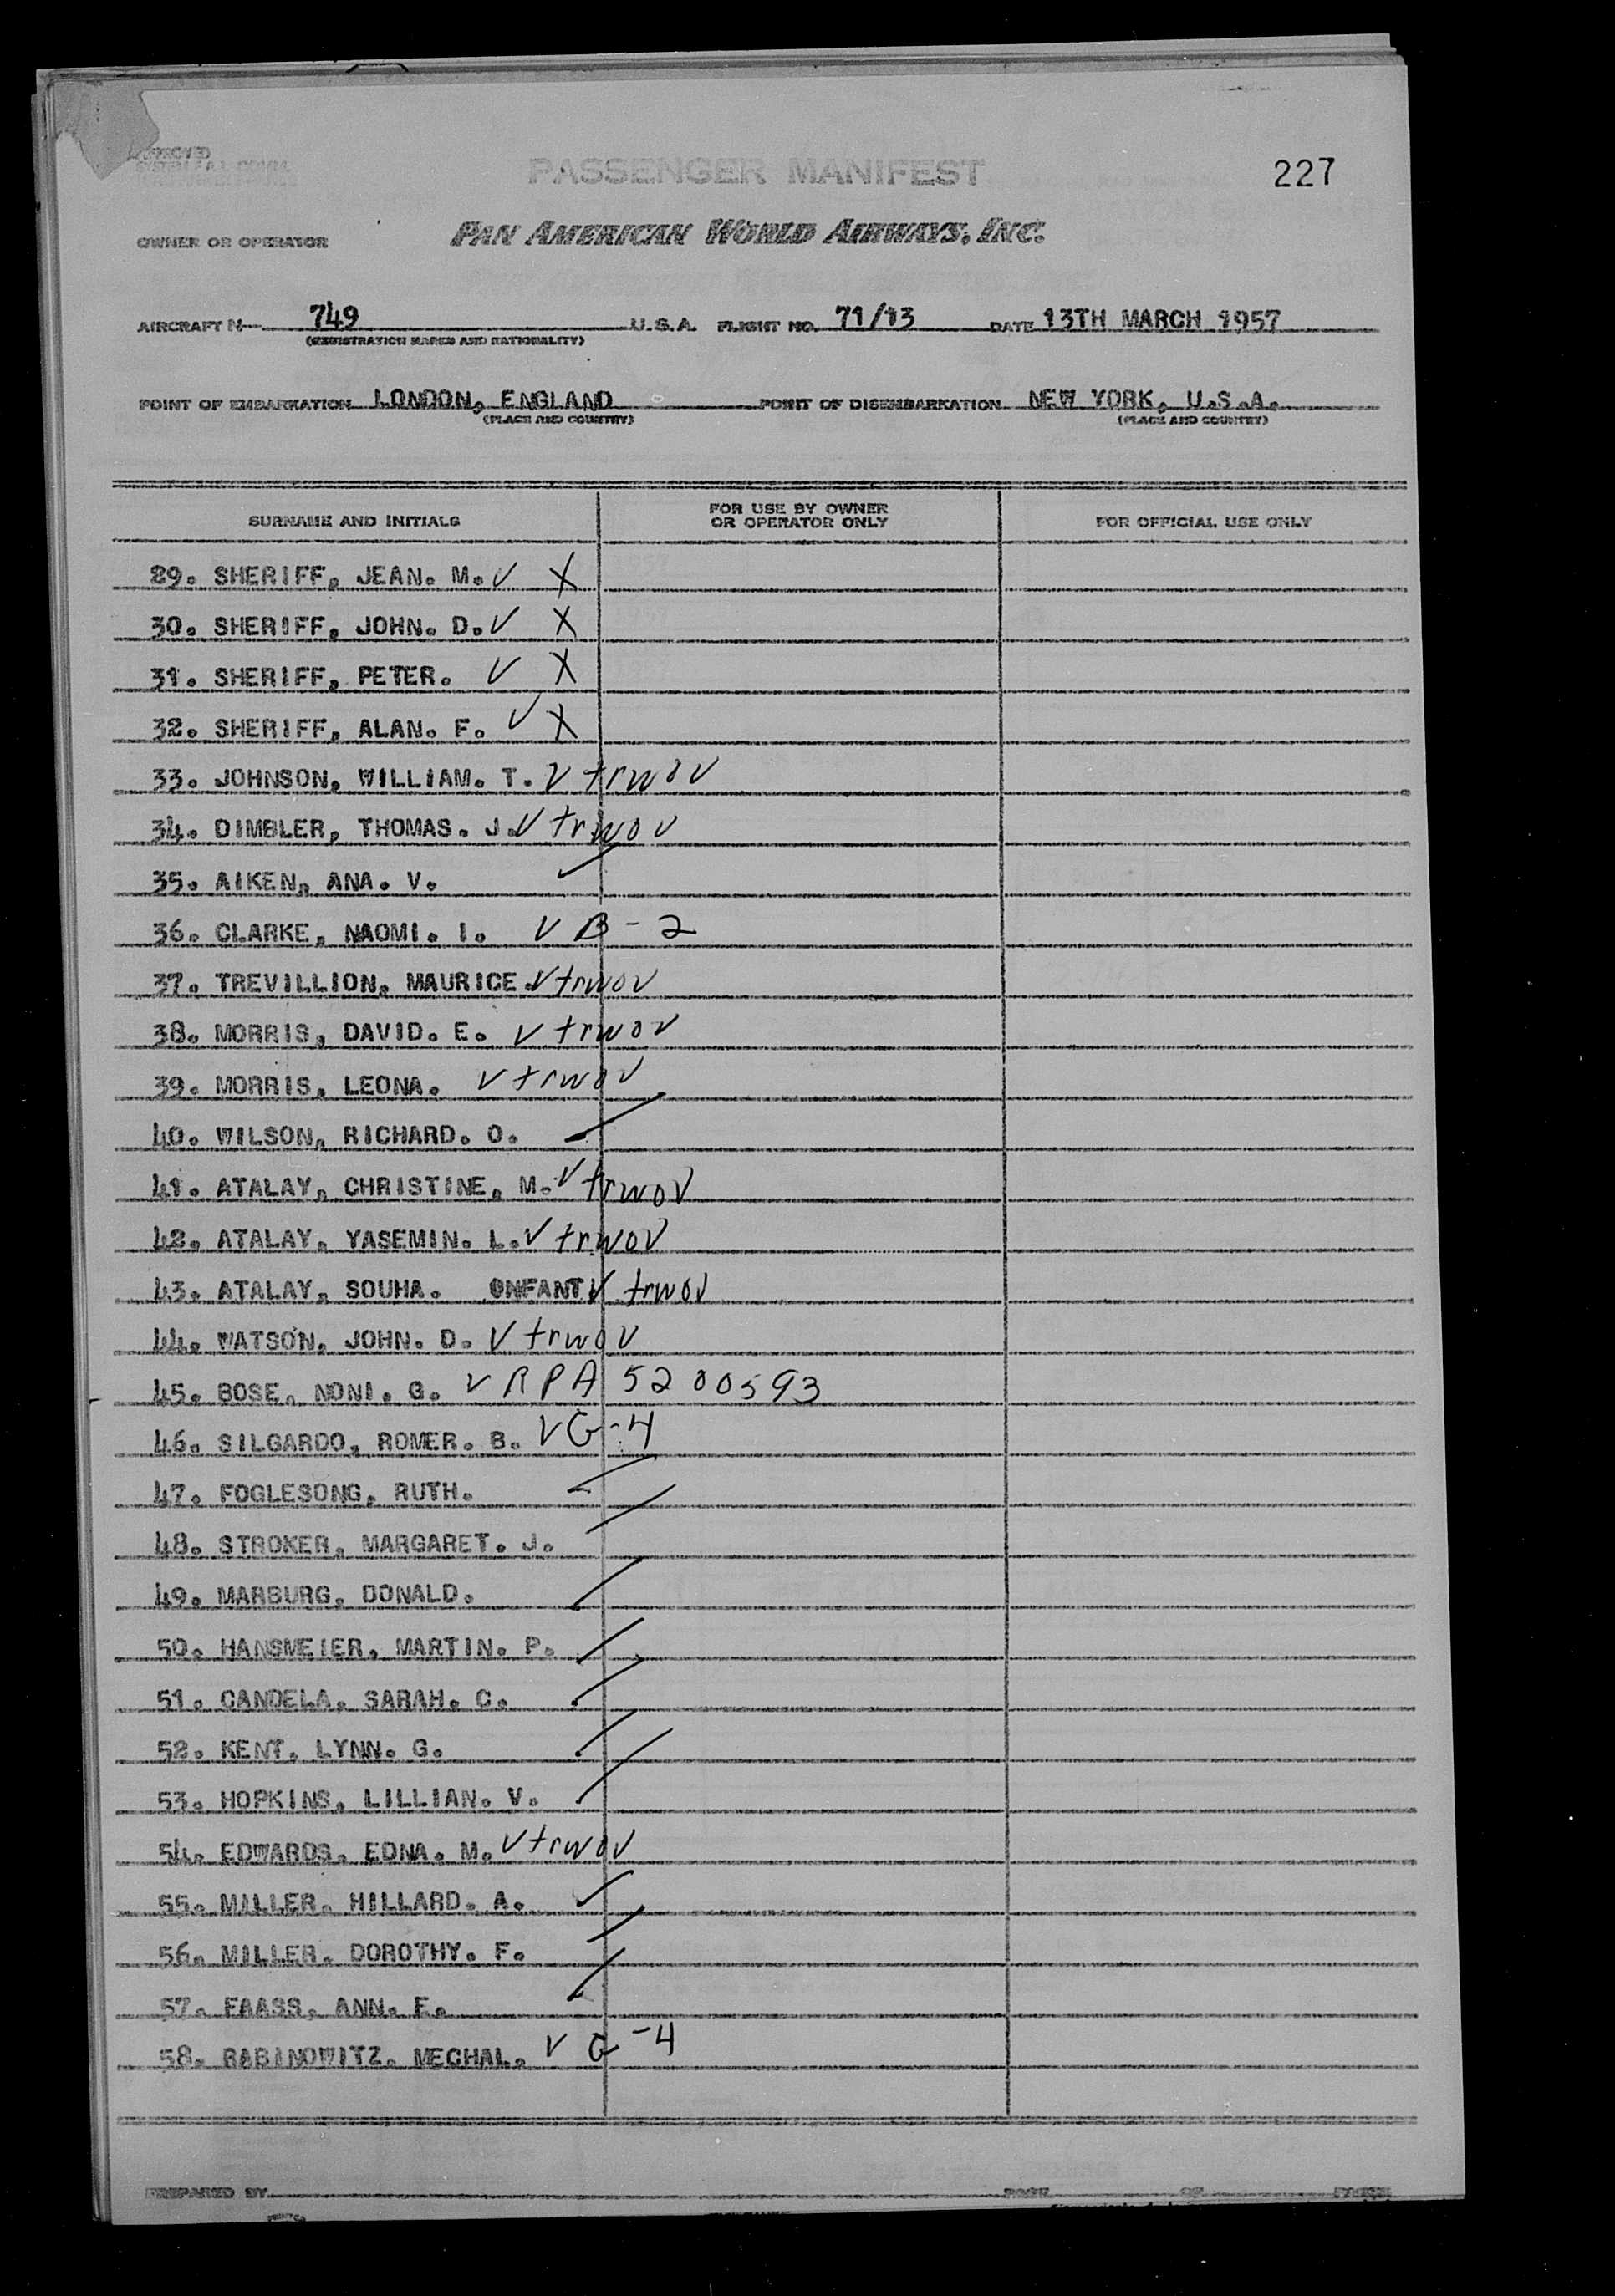 APPROVED
PASSENGER MANIFEST
227
OWNER OR OPERATOR PAN AMERICAN WORLD AIRWAYS, INC.
AIRCRAFT N 749 U.S.A. FLIGHT NO. 71/13 DATE 13TH MARCH 1957
(REGISTRATION MARKS AND NATIONALITY)
POINT OF EMBARKATION LONDON, ENGLAND POINT OF DISEMBARKATION NEW YORK, U.S.A.
(PLACE AND COUNTRY) (PLACE AND COUNTRY)
SURNAME AND INITIALS FOR USE BY OWNER OR OPERATOR ONLY FOR OFFICIAL USE ONLY
29. SHERIFF, JEAN. M. ✓ X
30. SHERIFF, JOHN. D. ✓ X
31. SHERIFF, PETER. ✓ X
32. SHERIFF, ALAN. F. ✓ X
33. JOHNSON, WILLIAM. T. V trwov
34. DIMBLER, THOMAS. J. V trwov
35. AIKEN, ANA. V. ✓
36. CLARKE, NAOMI. I. V B-2
37. TREVILLION, MAURICE. V trwov
38. MORRIS, DAVID. E. V trwov
39. MORRIS, LEONA. V trwov
40. WILSON, RICHARD. O.
41. ATALAY, CHRISTINE, M. V trwov
42. ATALAY, YASEMIN. L. V trwov
43. ATALAY, SOUHA. INFANT V trwov
44. WATSON, JOHN. D. V trwov
45. BOSE, NONI. G. V RPA 5200593
46. SILGARDO, ROMER. B. V G-4
47. FOGLESONG, RUTH.
48. STROKER, MARGARET. J.
49. MARBURG, DONALD.
50. HANSMEIER, MARTIN. P.
51. CANDELA, SARAH. C.
52. KENT, LYNN. G.
53. HOPKINS, LILLIAN. V.
54. EDWARDS, EDNA. M. V trwov
55. MILLER, HILLARD. A. ✓
56. MILLER, DOROTHY. F.
57. FAASS, ANN. E.
58. RABINOWITZ, MECHAL. V G-4
PREPARED BY PAGE OF PAGES